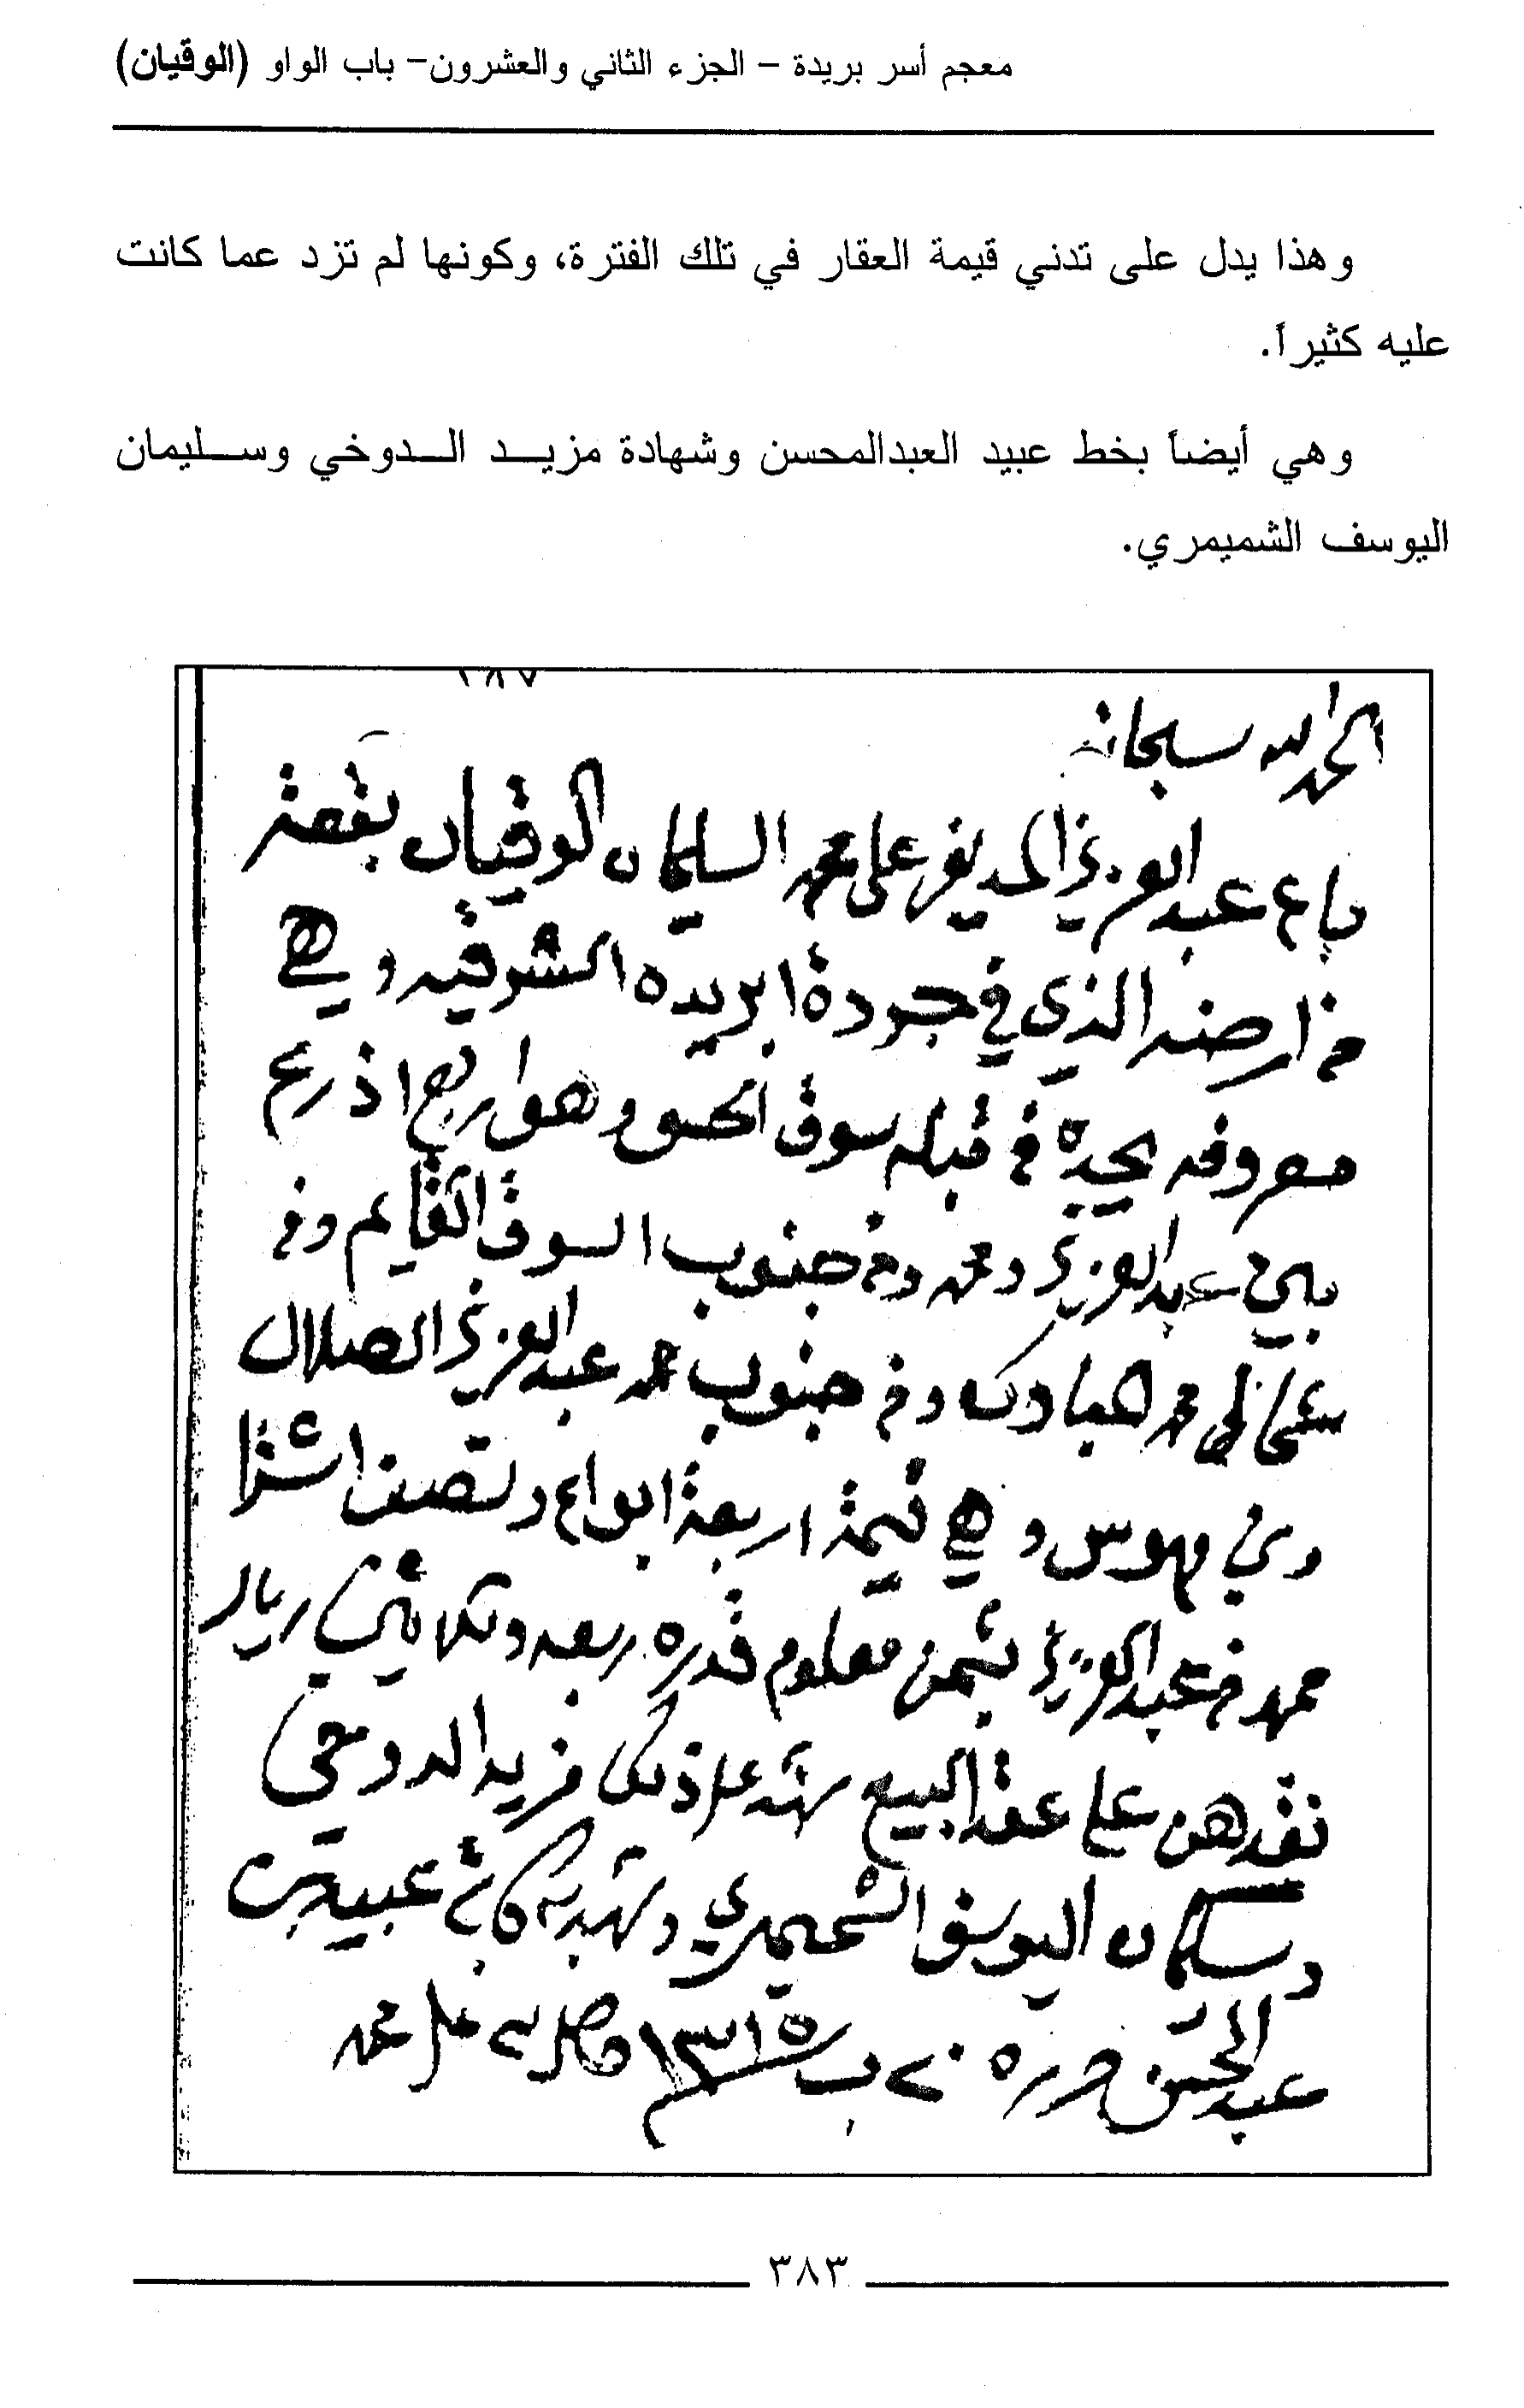 معجم أسر بريدة – الجزء الثاني والعشرون– باب الواو (الوقيان)
وهذا يدل على تدني قيمة العقار في تلك الفترة، وكونها لم تزد عما كانت
عليه كثيراً.
وهي أيضاً بخط عبيد العبدالمحسن وشهادة مزيد الدوخي وسليمان
اليوسف الشميمري.
الحمد لله سبحانه
باع عبد العزيز المديفر على محمد السليمان الوقيان بقعته
من ارضه الذي في جردة ابريده الشرقيه وهي
معروفه يحده من قبله سوق وهو اربع اذريع
بين عبد العزيز ومحمد ومن جنوب السوق القايم ومن
شمالي محمد ومن جنوب محمد عبد العزيز الصلال
وهي قيمة اربعة ابواع ونصف اشترا
محمد من عبد العزيز بثمن معلوم قدره ربعه وثلاثين ريال
نقدهن على عقد البيع شهد على ذلك مزيد الدوخي
وسليمان اليوسف الشميمري وشهد به كاتبه عبيد بن
عبد المحسن حرره ٢٠ ب ١٣١٥ محمد
٣٨٣